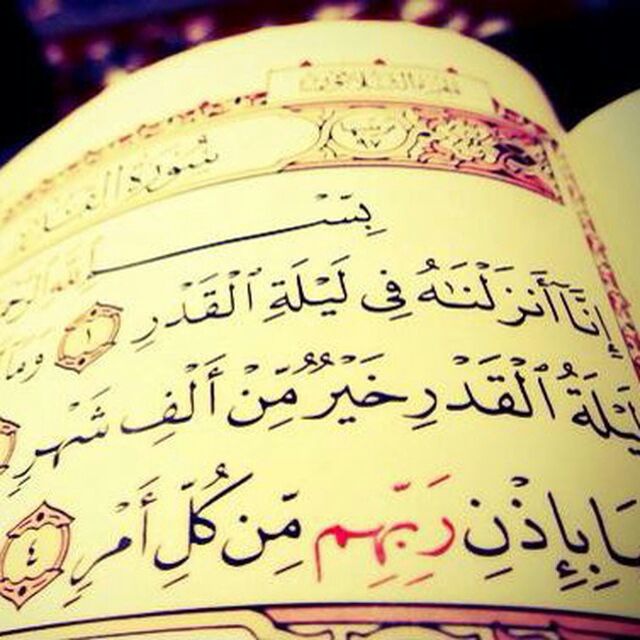 سورة القدر
بِسْــــمِ
إِنَّآ أَنزَلْنَٰهُ فِى لَيْلَةِ ٱلْقَدْرِ ١ وَمَا
لَيْلَةُ ٱلْقَدْرِ خَيْرٌ مِّنْ أَلْفِ شَهْرٍ
بِإِذْنِ رَبِّهِم مِّن كُلِّ أَمْرٍ ٤